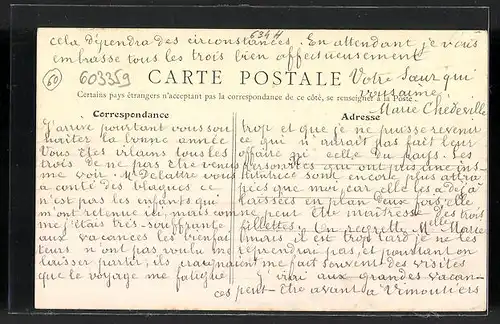 634 H
cela dépendra des circonstances. En attendant je vous
embrasse tous les trois bien affectueusement
60 603359
CARTE POSTALE
Votre Sœur qui
vous aime
Marie Chedeville
Certains pays étrangers n'acceptant pas la correspondance de ce côté, se renseigner à la Poste.
Correspondance
J'arrive pourtant vous sou
haiter la bonne année
Vous êtes vilains tous les
trois de ne pas être venus
me voir. Mr Delattre vous
a conté des blagues ce
n'est pas les enfants qui
m'ont retenue ici, mais comme
je l'étais très-souffrante,
aux vacances les bienfai
teurs n'ont pas voulu me
laisser partir, ils craignaient
que le voyage me fatigue
Adresse
trop et que je ne puisse revenir
ce qui n'aurait pas fait leur
affaire ni celle du pays. Les
personnes qui ont précédé
l'institutrice sont encore plus attra
pées que moi car elle les a déjà
laissées en plan deux fois, elle
ne peut être maîtresse des trois
fillettes. On regrette Mlle Marie
mais il est trop tard je ne les
reprendrai pas, et pourtant on
me fait souvent des visites
J'irai aux grandes vacan-
ces peut-être avant à Vimoutiers